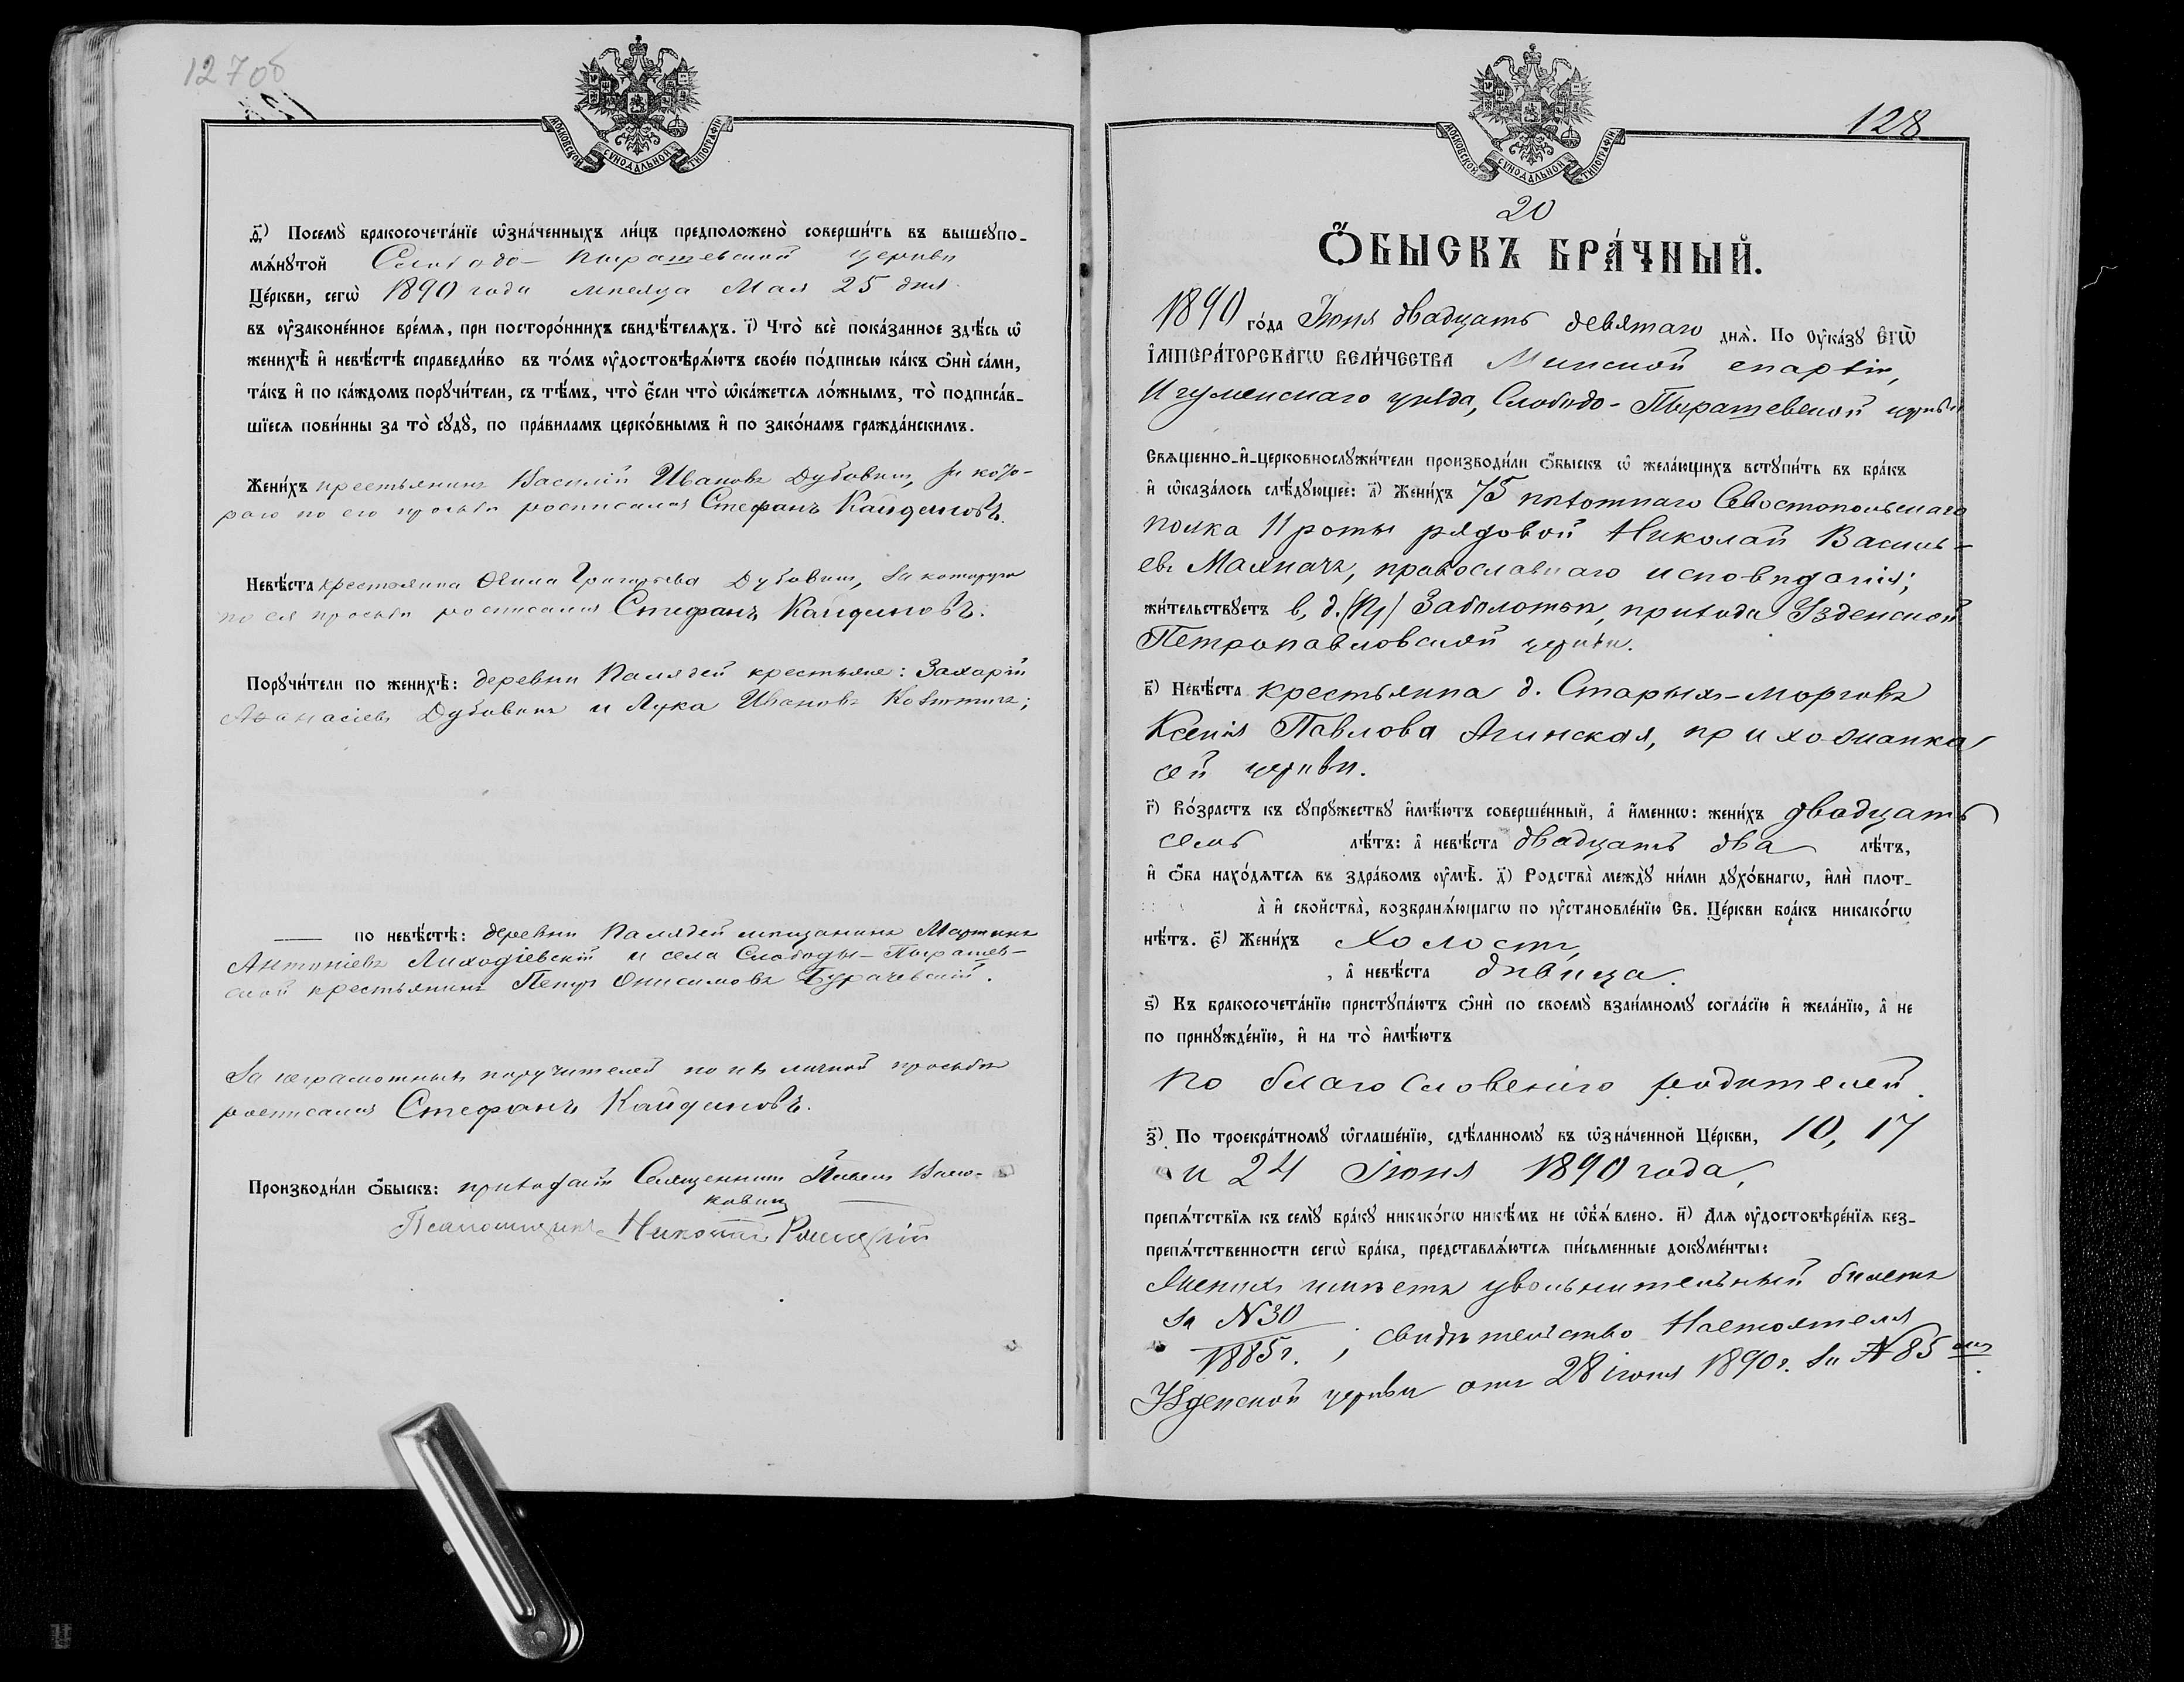 127об
МОСКОВСКОЙ СѴНОДАЛЬНОЙ ТИПОГРАФІИ
д҃і) Посемꙋ̀ бракосочета́нїе ѡ҆зна́ченныхъ ли́цъ предположено̀ соверши́ть въ вышеꙋпо-
мѧ́нꙋтой Слободо-Пырашевской церкви
Це́ркви, сегѡ̀ 1890 года мѣсяца Мая 25 дня
въ ᲂу҆законе́нное вре́мѧ, при посторо́ннихъ свидѣ́телѧхъ. і҃) Что̀ всѐ пока́занное здѣ́сь ѡ҆
женихѣ̀ и҆ невѣ́стѣ справедли́во въ то́мъ ᲂу҆достовѣрѧ́ютъ свое́ю по́дписью ка́къ ѻ҆нѝ са́ми,
та́къ и҆ по ка́ждомъ порꙋчи́тели, съ тѣ́мъ, что̀ є҆́сли что̀ ѡ҆ка́жетсѧ ло́жнымъ, то̀ подписа́в-
шїесѧ пови́нны за то̀ сꙋдꙋ̀, по пра́виламъ церко́внымъ и҆ по зако́намъ гражда́нскимъ.
Жени́хъ крестьянинъ Василій Ивановъ Дубовикъ, за кото-
раго по его просьбѣ росписался Стефанъ Кайдановъ.
Невѣ́ста крестьянка Григорьева Дубовик, за которую
по ея просьбѣ росписался Стефанъ Кайдановъ.
Порꙋчи́тели по женихѣ̀: деревни Калядей крестьяне: Захарій
Аѳанасіевъ Дубовикъ и Лука Ивановъ
по невѣ́стѣ: деревни Калядей мѣщанинъ Мартинъ
Антоніевъ Лиходіевскій и села Слободы-Пырашев-
ской крестьянинъ Петръ Онисимовъ Бурачевскій.
За неграмотныхъ поручителей по ихъ личной просьбѣ
росписался Стефанъ Кайдановъ.
Производи́ли ѻ҆́быскъ: приходскій Священникъ Павелъ
Псаломщикъ Николай
128
МОСКОВСКОЙ СѴНОДАЛЬНОЙ ТИПОГРАФІИ
20
Ѻ҆́БЫСКЪ БРА́ЧНЫЙ.
1890 го́да Іюня двадцать девятаго днѧ̀. По ᲂу҆ка́зꙋ Є҆гѡ̀
І҆мпера́торскагѡ вели́чества Минской епархіи,
Игуменскаго уѣзда, Слободо-Пырашевской церкви
Свѧщенно-и҆-церковнослꙋжи́тели производи́ли ѻ҆́быскъ ѡ҆ жела́ющихъ встꙋпи́ть въ бра́къ
и҆ ѡ҆каза́лось слѣ́дꙋющее: а҃) Жени́хъ 75 пѣхотнаго Севостопольскаго
полка 11 роты рядовой Николай Василь-
евъ Малначъ, православнаго исповѣданія;
жи́тельствꙋетъ в д. Заболотьи, прихода Узденской
Петропавловской церкви.
в҃) Невѣ́ста крестьянка д. Старыхъ-Морговъ
Ксенія Павлова Агинская, прихожанка
сей церкви.
г҃) Во́зрастъ къ сꙋпрꙋжествꙋ и҆мѣ́ютъ соверше́нный, а҆ и҆́меннѡ: жени́хъ двадцать
семь лѣ́тъ: а҆ невѣ́ста двадцать два лѣ́тъ,
и҆ ѻ҆́ба нахо́дѧтсѧ въ здра́вомъ ᲂу҆мѣ̀. д҃) Родства̀ междꙋ̀ ни́ми дꙋхо́внагѡ, и҆лѝ плот-
а̀ и҆ сво́йства̀, возбранѧ́ющагѡ по ᲂу҆становле́нїю Св. Це́ркви бра́къ никако́гѡ
нѣ́тъ. є҃) Жени́хъ холостъ,
, а҆ невѣ́ста дѣвица.
ѕ҃) Къ бракосочета́нїю пристꙋпа́ютъ ѻ҆нѝ по своемꙋ̀ взаи́мномꙋ согла́сїю и҆ жела́нїю, а҆ не
по принꙋжде́нїю, и҆ на то̀ и҆мѣ́ютъ
по благословенію родителей.
з҃) По троекра́тномꙋ ѡ҆глаше́нїю, сдѣ́ланномꙋ въ ѡ҆зна́ченной Це́ркви, 10, 17
и 24 Іюня 1890 года,
препѧ́тствїѧ къ семꙋ̀ бра́кꙋ никако́гѡ никѣ́мъ не ѡ҆б̾ѧ́влено. и҃) Для ᲂу҆достовѣре́нїѧ без-
препѧ́тственности сегѡ̀ бра́ка, представлѧ́ютсѧ пи́сьменные докꙋме́нты:
Женихъ имѣетъ увольнительный билетъ
за N30
1885г. ; свидѣтельство Настоятеля
Узденской церкви отъ 28 іюня 1890г. за №85